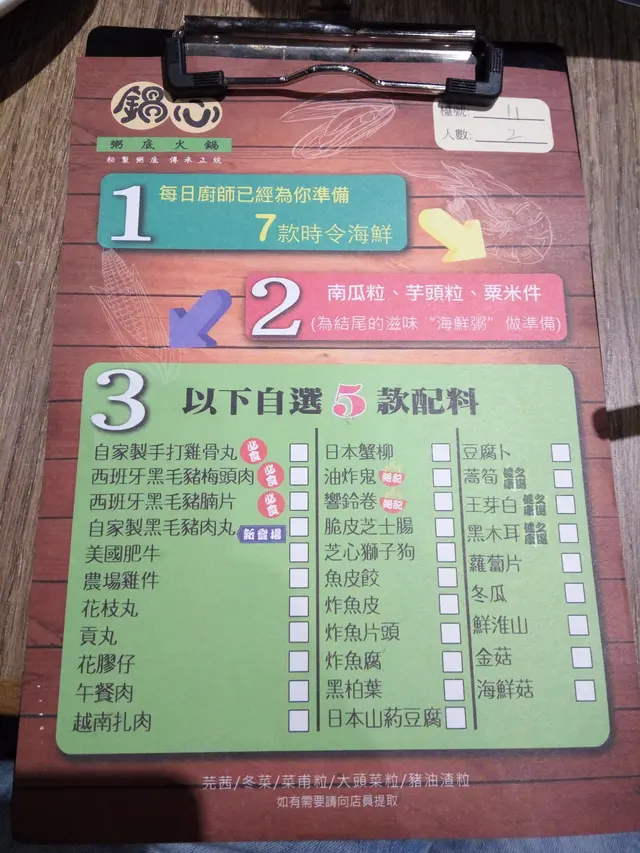 鍋心
粥底火鍋
秘製粥底 傳承正統
檯號: 11
人數: 2
1
每日廚師已經為你準備
7款時令海鮮
2
南瓜粒、芋頭粒、粟米件
(為結尾的滋味“海鮮粥”做準備)
3 以下自選5款配料
自家製手打雞骨丸 必食
西班牙黑毛豬梅頭肉 必食
西班牙黑毛豬腩片 必食
自家製黑毛豬肉丸 新登場
美國肥牛
農場雞件
花枝丸
貢丸
花膠仔
午餐肉
越南扎肉
日本蟹柳
油炸鬼 絕配
響鈴卷 絕配
脆皮芝士腸
芝心獅子狗
魚皮餃
炸魚皮
炸魚片頭
炸魚腐
黑柏葉
日本山药豆腐
豆腐卜
蒿筍 健康之選
王芽白 健康之選
黑木耳 健康之選
蘿蔔片
冬瓜
鮮淮山
金菇
海鮮菇
芫茜/冬菜/菜甫粒/大頭菜粒/豬油渣粒
如有需要請向店員提取